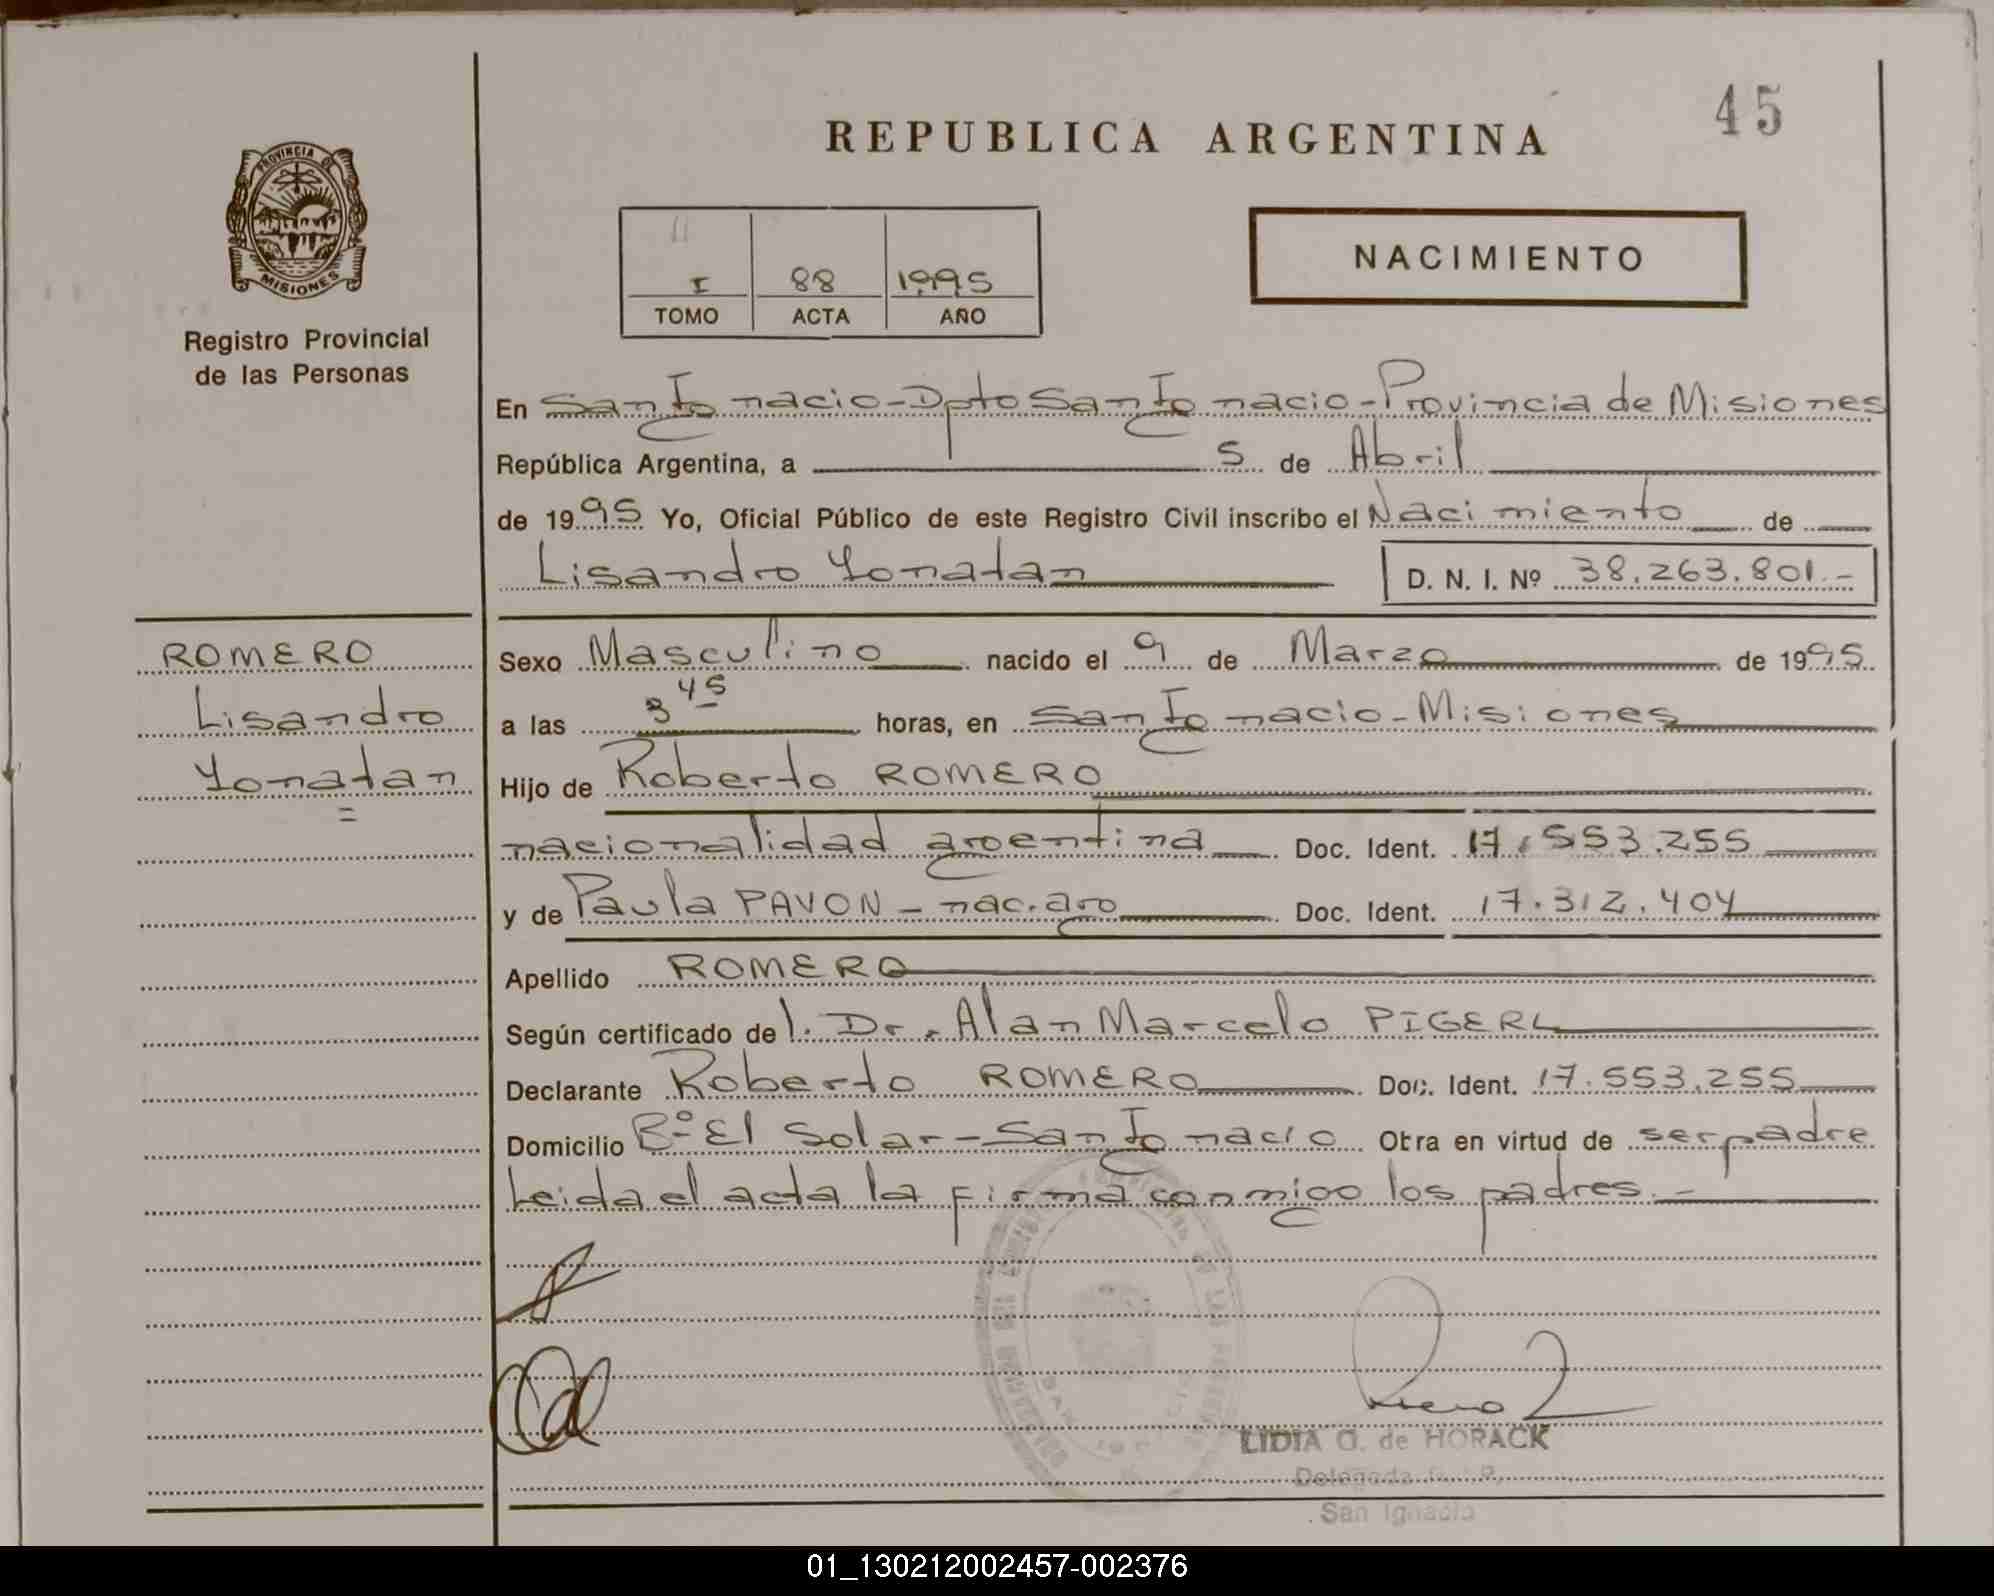 45
REPUBLICA ARGENTINA
PROVINCIA DE
MISIONES
Registro Provincial
de las Personas
I 88 1995
TOMO ACTA AÑO
NACIMIENTO
En San Ignacio - Dpto San Ignacio - Provincia de Misiones
República Argentina, a 5 de Abril
de 1995 Yo, Oficial Público de este Registro Civil inscribo el Nacimiento de
Lisandro Yonatan D. N. I. Nº 38.263.801.-
ROMERO
Lisandro
Yonatan
Sexo Masculino nacido el 9 de Marzo de 1995
a las 3 45 horas, en San Ignacio - Misiones
Hijo de Roberto ROMERO
nacionalidad argentina Doc. Ident. 17.553.255
y de Paula PAVON - nac. arg Doc. Ident. 17.312.404
Apellido ROMERO
Según certificado del. Dr. Alan Marcelo PIGERL
Declarante Roberto ROMERO Doc. Ident. 17.553.255
Domicilio Bº El Solar - San Ignacio Otra en virtud de ser padre
Leida el acta la firma conmigo los padres.-
LIDIA G. de HORACK
San Ignacio
01_130212002457-002376